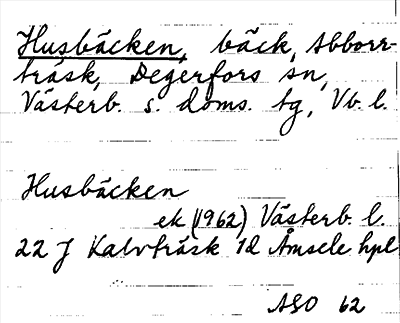 Husbäcken, bäck, Abborr-
träsk, Degerfors sn,
Västerb. s. doms. tg, Vb. l.
Husbäcken
ek (1962) Västerb. l.
22 J Kalvträsk 1d Åmsele hpl
ASO 62